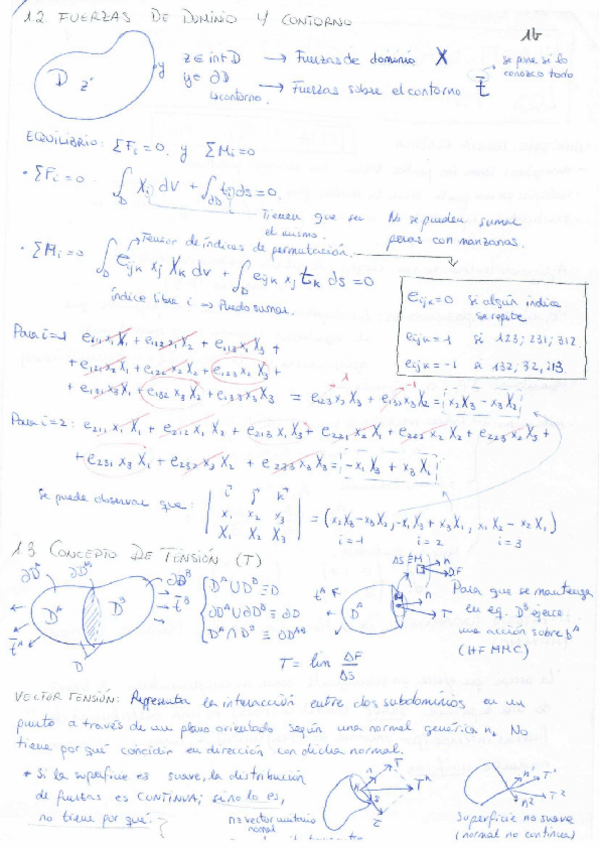 1.2 FUERZAS DE DOMINIO Y CONTORNO
1b
D z· y
z ∈ int D → Fuerzas de dominio X
y ∈ ∂D → Fuerzas sobre el contorno t̄
↳contorno.
se pone si lo conozco todo
EQUILIBRIO: ΣFi = 0 y ΣMi = 0
· ΣFi = 0 ∫D Xi dv + ∫∂D ti ds = 0.
Tienen que ser el mismo.
No se pueden sumar peras con manzanas.
Tensor de índices de permutación.
· ΣMi = 0 ∫D eijk xj Xk dv + ∫∂D eijk xj tk ds = 0
Índice libre i → Puedo sumar.
eijk = 0 si algún índice se repite
eijk = 1 si 123; 231; 312.
eijk = -1 si 132, 32, 213.
Para i=1 e111 x1 X1 + e112 x1 X2 + e113 x1 X3 +
+ e121 x2 X1 + e122 x2 X2 + e123 x2 X3 +
+ e131 x3 X1 + e132 x3 X2 + e133 x3 X3 = e123 x2 X3 + e132 x3 X2 = x2 X3 - x3 X2
1 -1
Para i=2: e211 x1 X1 + e212 x1 X2 + e213 x1 X3 + e221 x2 X1 + e222 x2 X2 + e223 x2 X3 +
+ e231 x3 X1 + e232 x3 X2 + e233 x3 X3 = -x1 X3 + x3 X1
Se puede observar que: | i j k ; x1 x2 x3 ; X1 X2 X3 | = (x2X3 - x3X2, -x1X3 + x3X1, x1X2 - x2X1)
i=1 i=2 i=3
1.3 CONCEPTO DE TENSIÓN (T)
∂Dᴬ ∂Dᴬᴮ ∂Dᴮ
Dᴬ Dᴮ t̄ᴬ t̄ᴮ D
Dᴬ ∪ Dᴮ ≡ D
∂Dᴬ ∪ ∂Dᴮ ≡ ∂D
Dᴬ ∩ Dᴮ ≡ ∂Dᴬᴮ
tᴬ Dᴬ n T
ΔS n ΔF
T = lim ΔF/ΔS
Para que se mantenga
en eq. Dᴮ ejerce
una acción sobre Dᴬ
(HF MMC)
VECTOR TENSIÓN: Representa la interacción entre dos subdominios en un
punto a través de un plano orientado según una normal genérica n. No
tiene por qué coincidir en dirección con dicha normal.
* Si la superficie es suave, la distribución
de fuerzas es CONTINUA; si no lo es,
no tiene por qué.
n≡vector unitario normal
n Tⁿ τ
n¹ T¹ n² T²
Superficie no suave
(normal no continua)